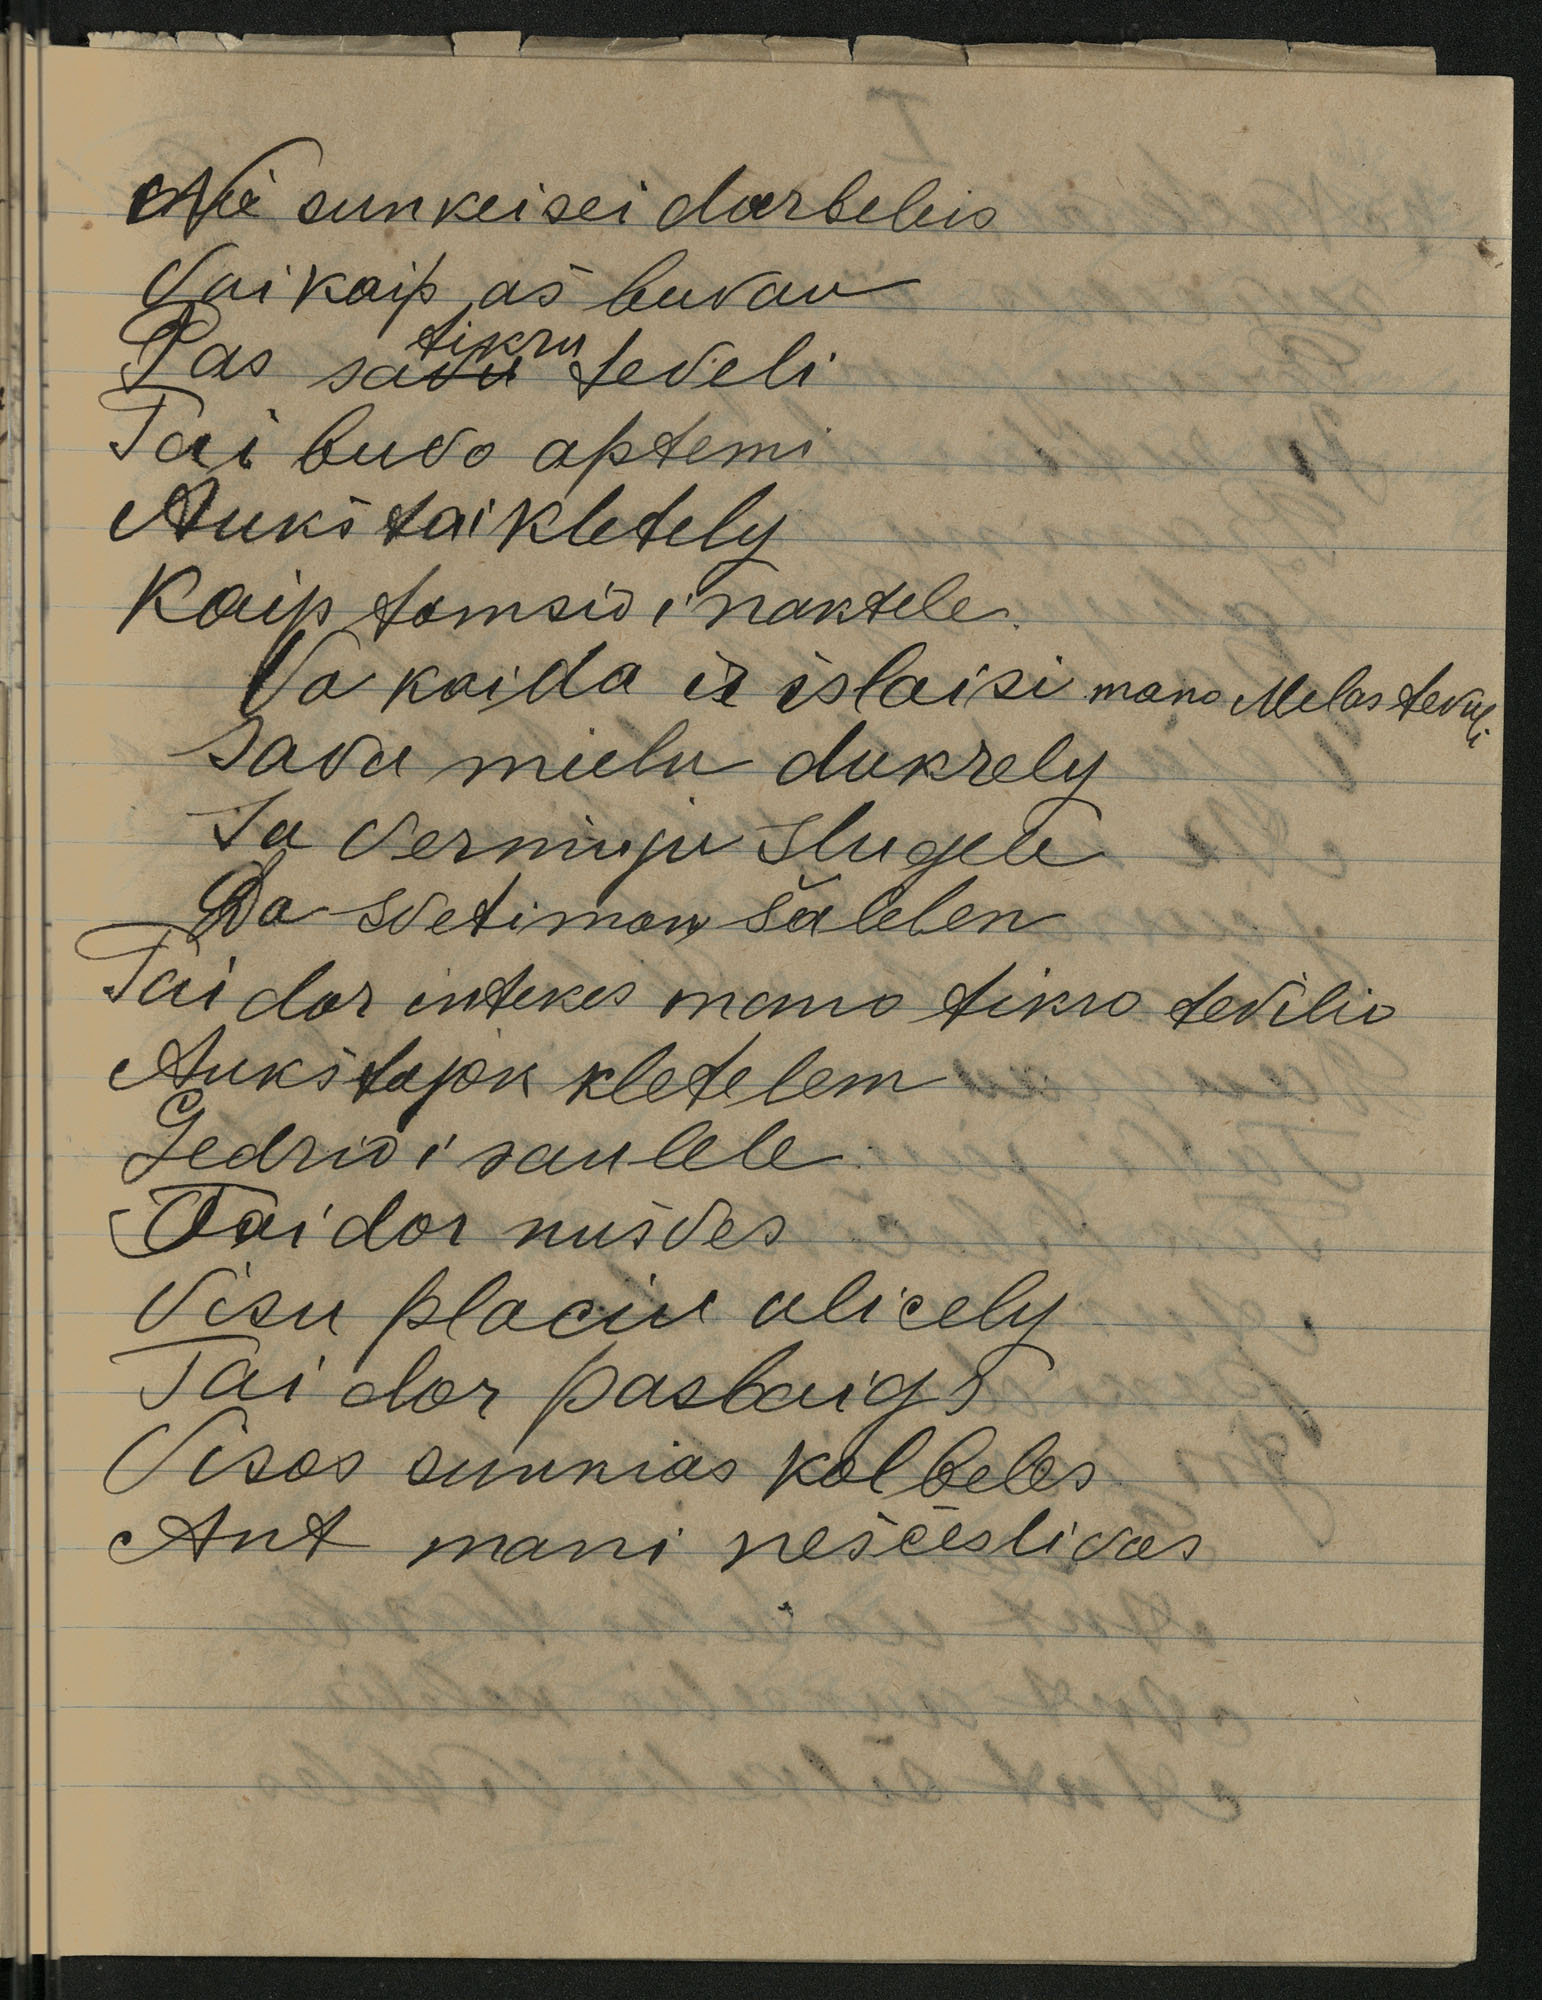 Nė sunkeisei darbeleis
Vai kaip aš buvau
Pas savu tikru teveli
Tai buvo aptemi
Aukštai kletely
Kaip tamsivi naktele.
Va kaida ir islaisi mano Melas teveli
Sava mielu dukrely
Ta verniuju slugele
Da svetiman šalelen
Tai dar intekes mano tikro tevelio
Aukštajon kletelem
Gedrivi saulele
Tai dar nušves
Visu placiu ulicely
Tai dar pasbaigs
Visos sunkias kalbeles
Ant mani neščėslivas